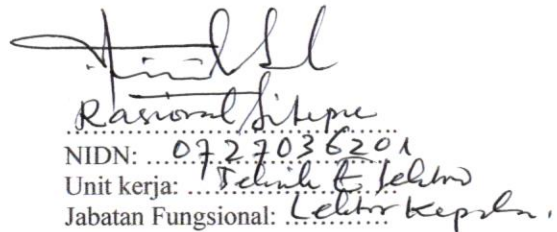 Rasional Sitepu
NIDN: 0727036201
Unit kerja: Teknik Elektro
Jabatan Fungsional: Lektor Kepala.